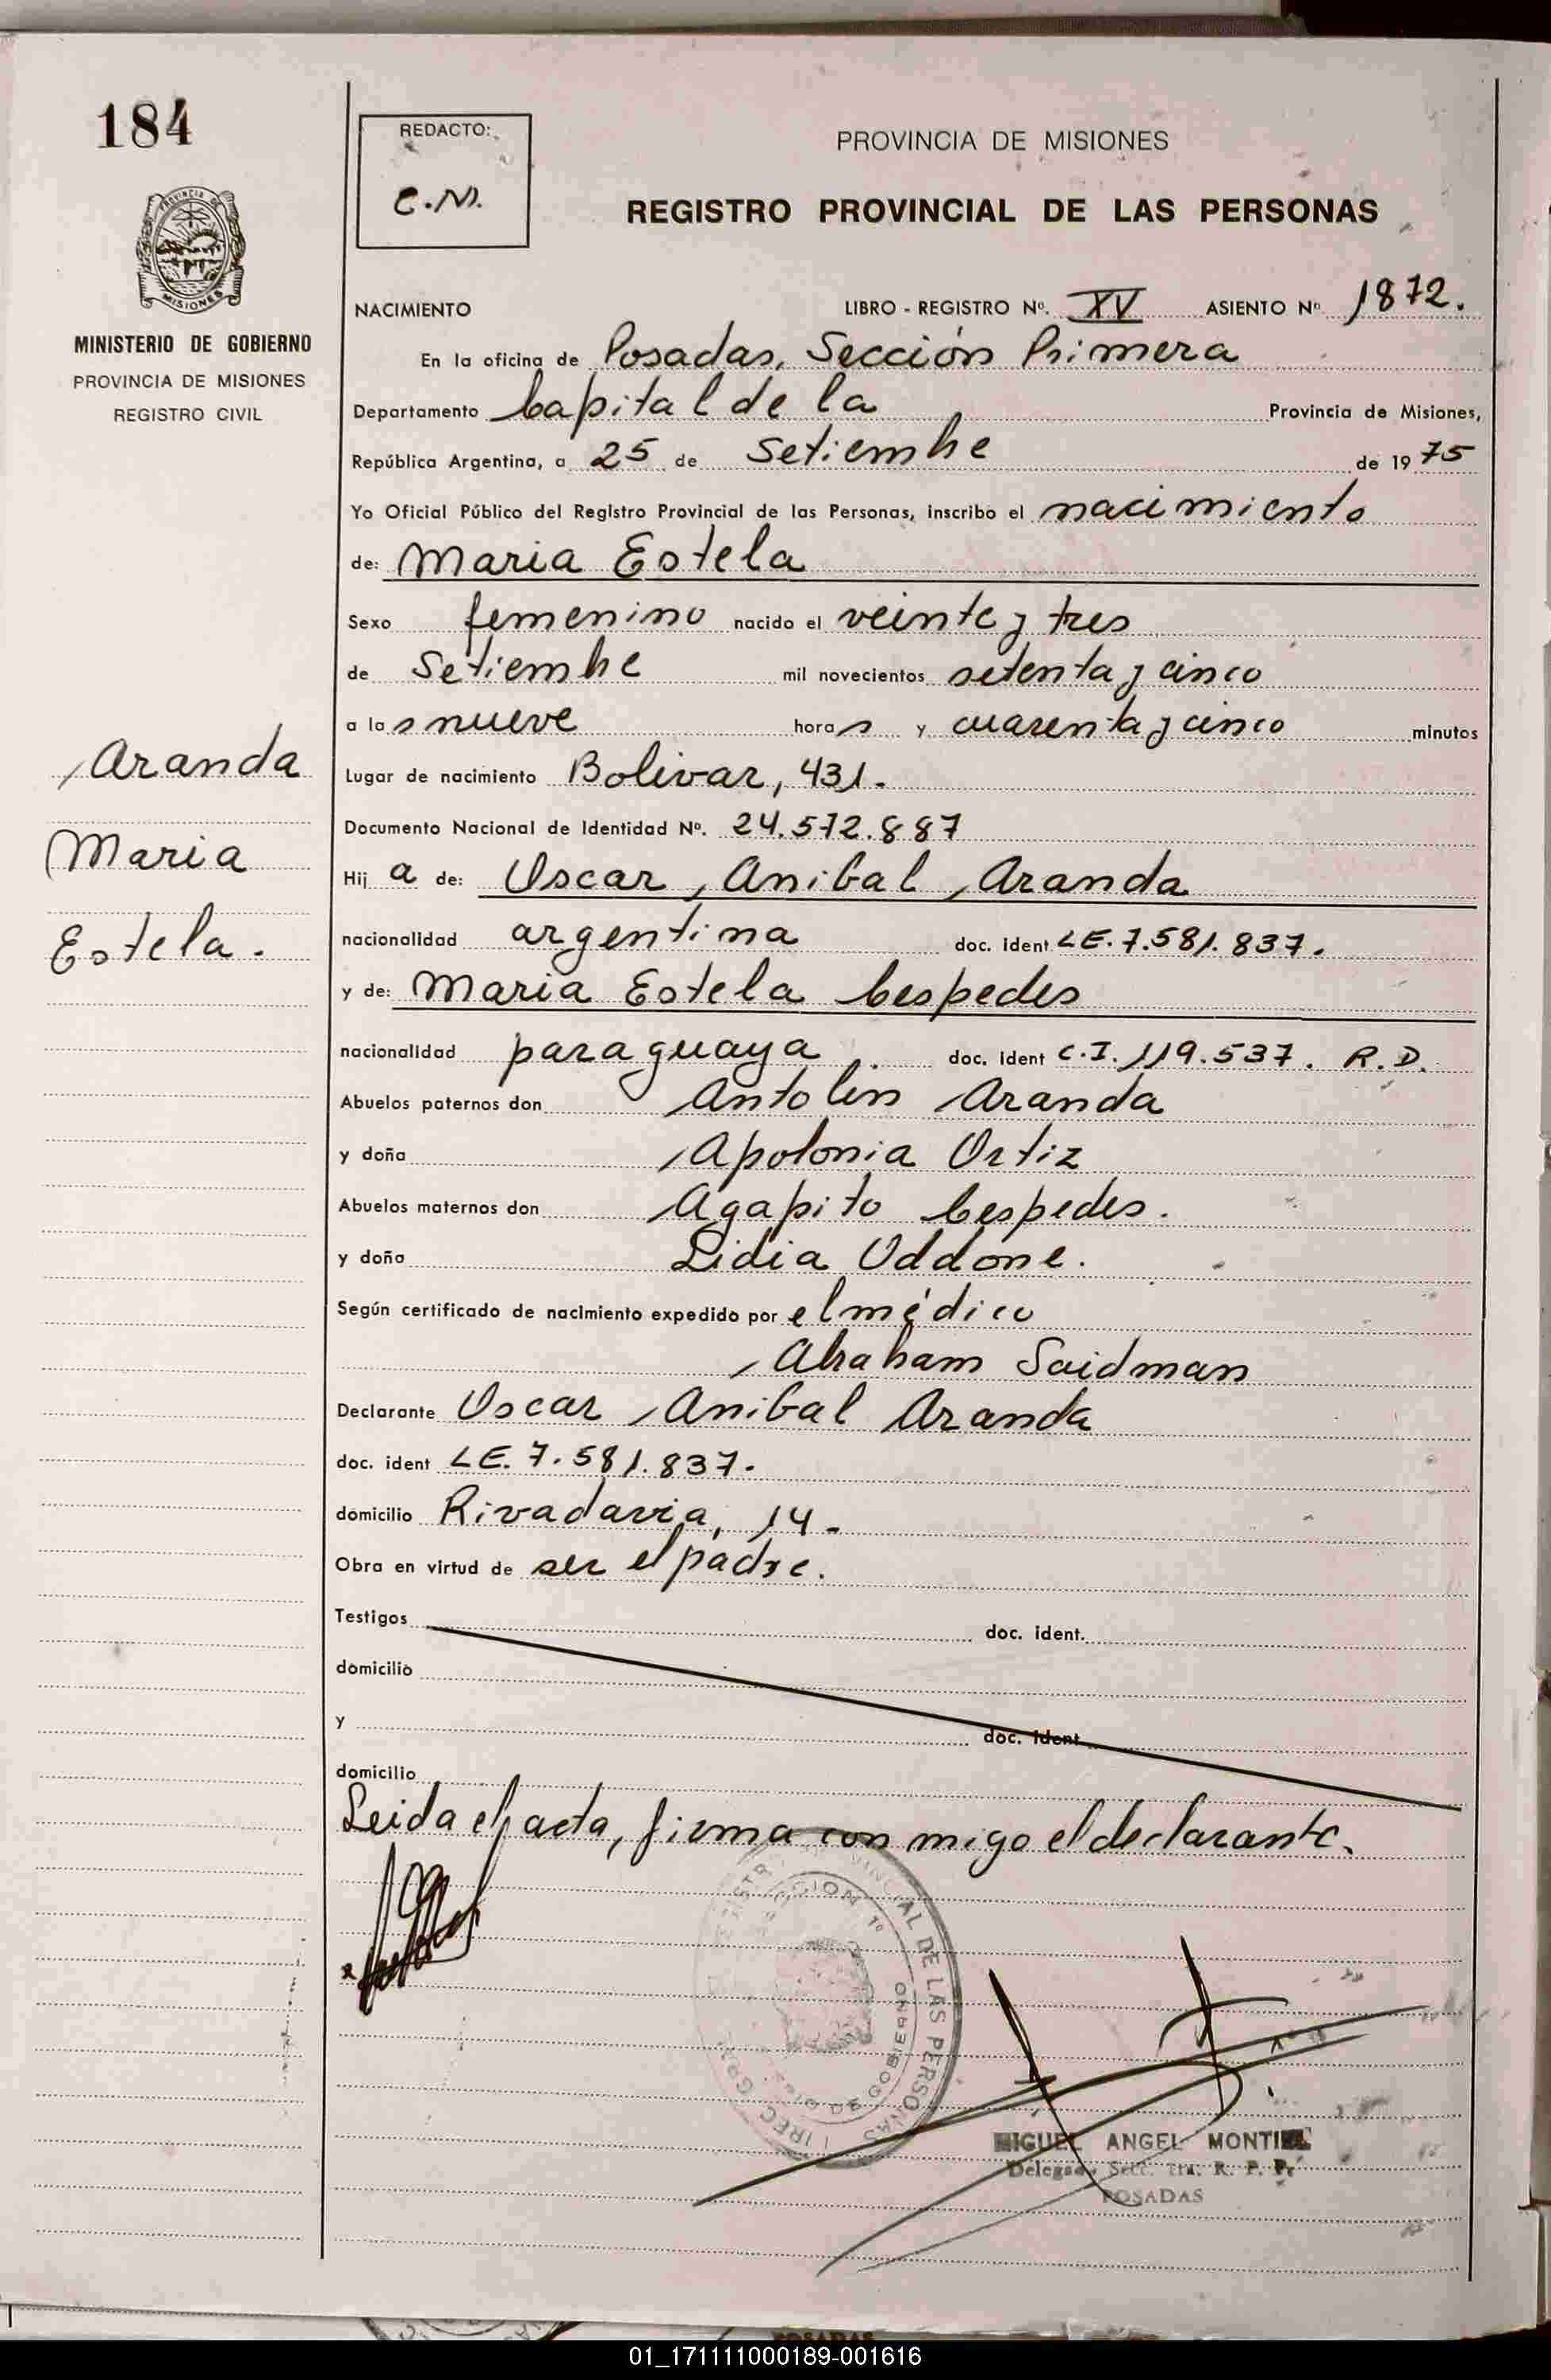 184
PROVINCIA DE
MISIONES
MINISTERIO DE GOBIERNO
PROVINCIA DE MISIONES
REGISTRO CIVIL
REDACTO:
C.N.
PROVINCIA DE MISIONES
REGISTRO PROVINCIAL DE LAS PERSONAS
NACIMIENTO LIBRO - REGISTRO Nº. XV ASIENTO Nº 1872.
En la oficina de Posadas, Sección Primera
Departamento Capital de la Provincia de Misiones,
República Argentina, a 25 de Setiembre de 1975
Yo Oficial Público del Registro Provincial de las Personas, inscribo el nacimiento
de: Maria Estela
Sexo femenino nacido el veinte y tres
de Setiembre mil novecientos setenta y cinco
a las nueve horas y cuarenta y cinco minutos
Aranda
Maria
Estela.
Lugar de nacimiento Bolivar, 431.
Documento Nacional de Identidad Nº. 24.572.887
Hija de: Oscar Anibal Aranda
nacionalidad argentina doc. ident LE. 7.581.837.
y de: Maria Estela Cespedes
nacionalidad paraguaya doc. ident C.I. 119.537. R.D.
Abuelos paternos don Antolin Aranda
y doña Apolonia Ortiz
Abuelos maternos don Agapito Cespedes.
y doña Lidia Oddone.
Según certificado de nacimiento expedido por el médico
Abraham Saidman
Declarante Oscar Anibal Aranda
doc. ident LE. 7.581.837.
domicilio Rivadavia, 14.
Obra en virtud de ser el padre.
Testigos doc. ident.
domicilio
y doc. ident
domicilio
Leida el acta, firma con migo el declarante.
PROVINCIAL DE LAS PERSONAS
SECCION 1º
DE GOBIERNO
MIGUEL ANGEL MONTIEL
Delegado Secc. 1ra. R. P. P.
POSADAS
01_171111000189-001616